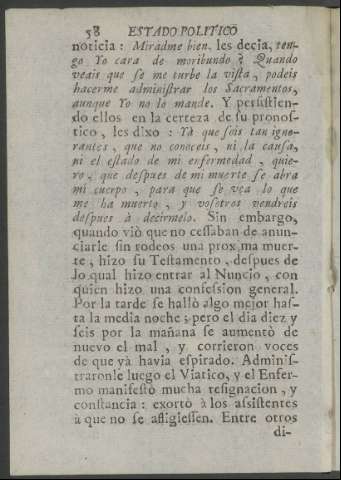 58 ESTADO POLITICO
noticia : Miradme bien, les decia, ten-
go Yo cara de moribundo ? Quando
veais que ſe me turbe la viſta, podeis
hacerme adminiſtrar los Sacramentos,
aunque Yo no lo mande. Y perſiſtien-
do ellos en la certeza de ſu pronoſ-
tico, les dixo : Yà que ſois tan igno-
rantes, que no conoceis, ni la cauſa,
ni el eſtado de mi enfermedad, quie-
ro, que deſpues de mi muerte ſe abra
mi cuerpo, para que ſe vea lo que
me ha muerto, y voſotros vendreis
deſpues à decirmelo. Sin embargo,
quando viò que no ceſſaban de anun-
ciarle ſin rodeos una proxima muer-
te, hizo ſu Teſtamento, deſpues de
lo qual hizo entrar al Nuncio, con
quien hizo una confeſſion general.
Por la tarde ſe hallò algo mejor haſ-
ta la media noche ; pero el dia diez y
ſeis por la mañana ſe aumentò de
nuevo el mal, y corrieron voces
de que yà havia eſpirado. Adminiſ-
traronle luego el Viatico, y el Enfer-
mo manifeſtò mucha reſignacion, y
conſtancia : exortò à los aſſiſtentes
à que no ſe afligieſſen. Entre otros
di-